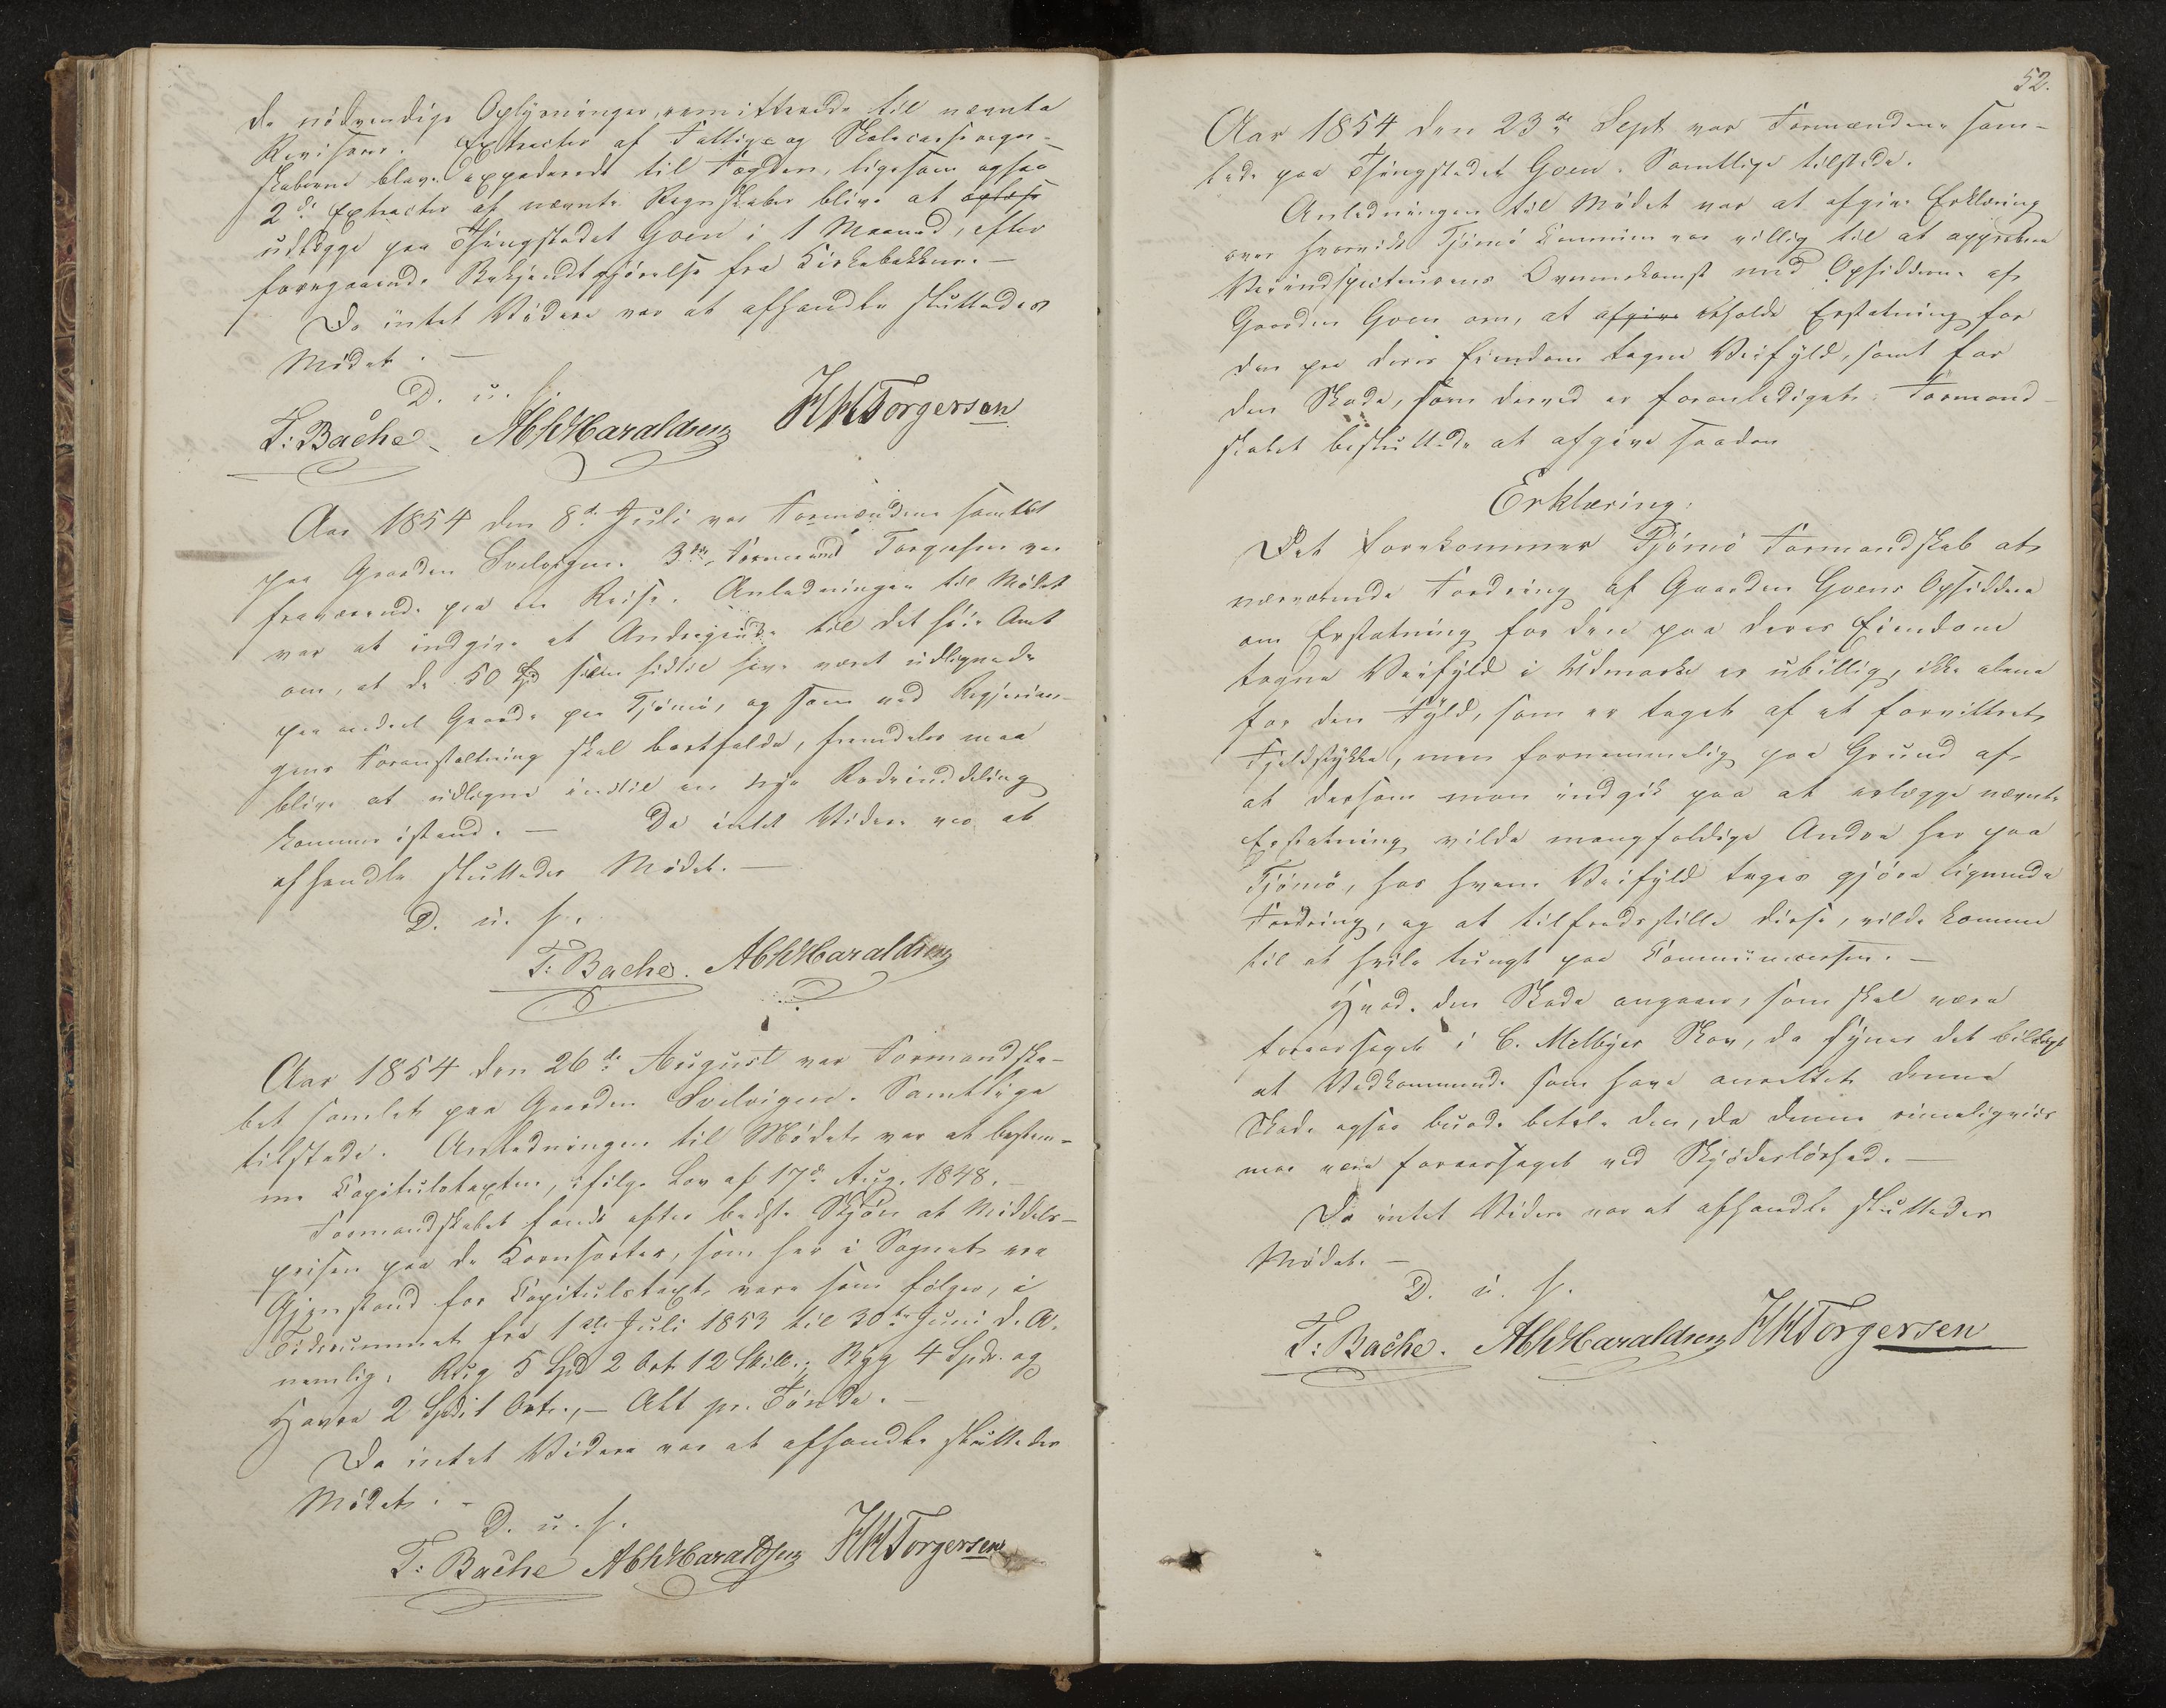 de nødvendige Oplysninger, remitterede til nævnte
Revisorer. Extracter af Fattig- og Skolecasseregn-
skaberne bleve expederede til Fogden, ligesom ogsaa
2de Extracter af nævnte Regnskaber blive at oplæse
udlægge paa Thingstedet Goen i 1 Maaned, efter
foregaaende Bekjendtgjørelse fra Kirkebakken. —
Da intet Videre var at afhandle sluttedes
Mødet. —
D. u. s.
T: Bache AbHHaraldsen HKTorgersen
Aar 1854 den 8de Juli var Formændene samlet
paa Gaarden Svelvigen. 3die Formand Torgersen var
fraværende paa en Reise. Anledningen til Mødet
var at indgive et Andragende til det høie Amt
om, at de 50 Spd som hidtil have været udlignede
paa endeel Gaarde paa Tjømø, og som ved Regjerin-
gens Foranstaltning skal bortfalde, fremdeles maa
blive at udligne indtil en nye Rodeinddeling
kommer istand. — Da intet Videre var at
afhandle sluttedes Mødet. —
D. u. s.
T: Bache. AbHHaraldsen
Aar 1854 den 26de August var Formandska-
bet samlet paa Gaarden Svelvigen. Samtlige
tilstede. Anledningen til Mødet var at bestem-
me Capitulstaxten, ifølge Lov af 17de Aug. 1848. —
Formandskabet fandt efter bedste Skjøn at Middels-
prisen paa de Kornsorter, som her i Sognet ere
Gjenstand for Capitulstaxt, vare som følger, i
Tidsrummet fra 1ste Juli 1853 til 30te Juni d. A.
nemlig: Rug 5 Spd 2 Ort 12 Skill.; Byg 4 Spdr. og
Havre 2 Spd 1 Ort., — Alt pr. Tønde. —
Da intet Videre var at afhandle sluttedes
Mødet. —
D. u. s.
T: Bache AbHHaraldsen HKTorgersen
52.
Aar 1854 den 23de Sept var Formændene sam-
lede paa Thingstedet Goen. Samtlige tilstede.
Anledningen til Mødet var at afgive Erklæring
over hvorvidt Tjømø Commune var villig til at approbere
Veiindspecteurens Overenskomst med Opsidderne af
Gaarden Goen om, at afgive erholde Erstatning for
den paa deres Eiendom tagne Veifyld, samt for
den Skade, som derved er foranlediget. Formand-
skabet besluttede at afgive saadan
Erklæring:
Det forekommer Tjømø Formandskab at
nærværende Fordring af Gaarden Goens Opsiddere
om Erstatning for den paa deres Eiendom
tagne Veifyld i Udmarke er ubillig, ikke alene
for den Fyld, som er taget af et forvittret
Fjeldstykke, men fornemmelig paa Grund af
at dersom man indgik paa at erlægge nævnte
Erstatning vilde mangfoldige Andre her paa
Tjømø, hos hvem Veifyld tages gjøre lignende
Fordring, og at tilfredsstille disse, vilde komme
til at hvile tungt paa Communecassen. —
Hvad den Skade angaaer, som skal være
foraarsaget i C. Melbyes Skov, da synes det billigt
at Vedkommende som have anrettet denne
Skade ogsaa burde betale den, da denne rimeligviis
maa være foraarsaget ved Skjødesløshed. —
Da intet Videre var at afhandle sluttedes
Mødet. —
D. u. s.
T: Bache. AbHHaraldsen HKTorgersen